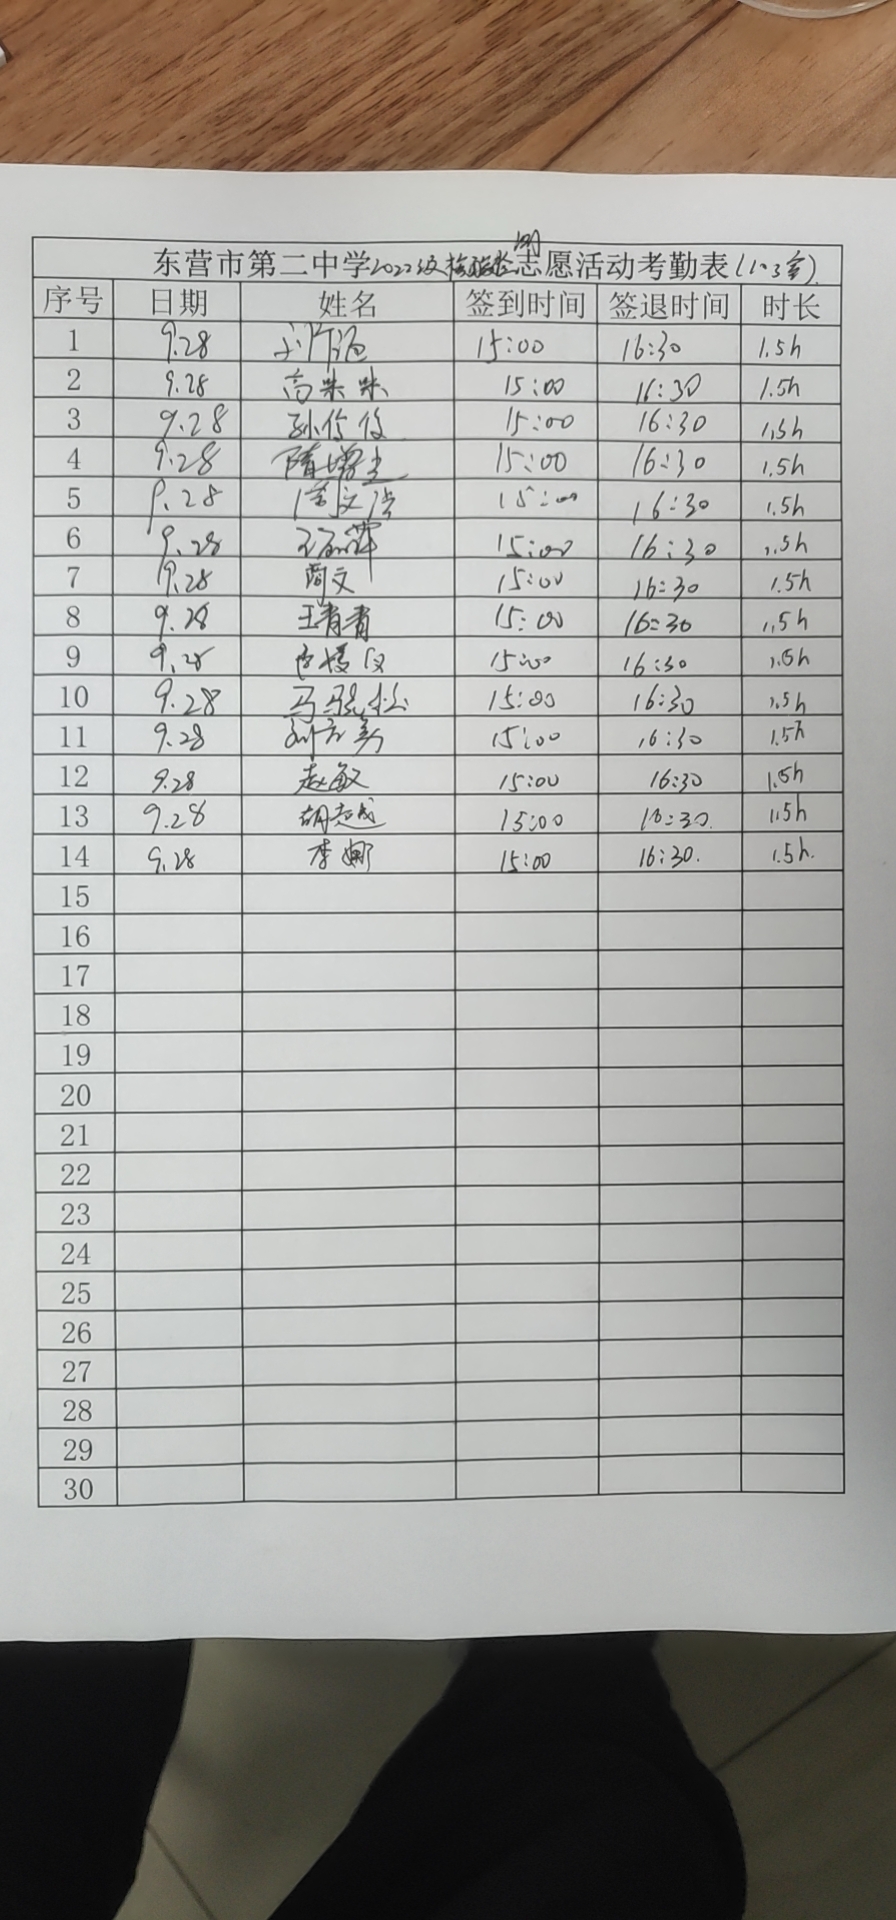 东营市第二中学2022级检验检测志愿活动考勤表(1-3套)
序号 日期 姓名 签到时间 签退时间 时长
1 9.28 15:00 16:30 1.5h
2 9.28 高味味 15:00 16:30 1.5h
3 9.28 15:00 16:30 1.5h
4 9.28 15:00 16:30 1.5h
5 9.28 15:00 16:30 1.5h
6 9.28 15:00 16:30 1.5h
7 9.28 周文 15:00 16:30 1.5h
8 9.28 王青青 15:00 16:30 1.5h
9 9.28 15:00 16:30 1.5h
10 9.28 15:00 16:30 1.5h
11 9.28 15:00 16:30 1.5h
12 9.28 赵敏 15:00 16:30 1.5h
13 9.28 胡志成 15:00 16:30. 1.5h
14 9.28 李娜 15:00 16:30. 1.5h.
15
16
17
18
19
20
21
22
23
24
25
26
27
28
29
30